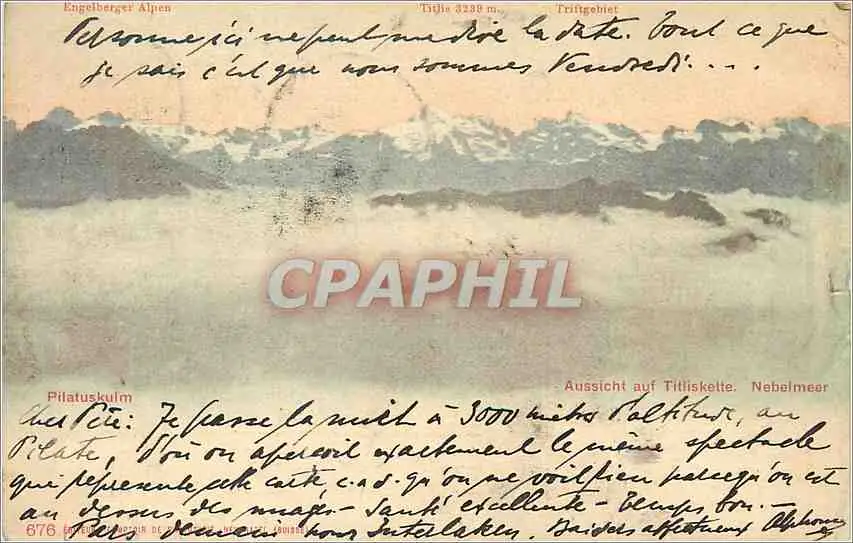 Engelberger Alpen Titlis 3239 m. Triftgebiet
Personne ici ne peut me dire la date. Tout ce que
je sais c'est que nous sommes Vendredi....
CPAPHIL
Pilatuskulm Aussicht auf Titliskette. Nebelmeer
Cher Pété: Je passe la nuit à 3000 mètres d'altitude, au
Pilate, d'où on aperçoit exactement le même spectacle
que représente cette carte, c.a.d. qu'on ne voit rien parcequ'on est
au dessus des nuages - Santé excellente - Temps bon. -
676 COMPTOIR DE NEUCHATEL (SUISSE)
Dès demain pour Interlaken. Baisers affectueux Alphonse